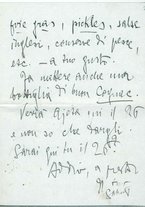 foie gras, pickles, salse
inglesi, conserve di pesce,
etc. — a tuo gusto.
Fa mettere anche una
bottiglia di buon Cognac.
Verrà
in il 26
e non so che dargli.
Sarai qui tu il 26?
Addio, a presto